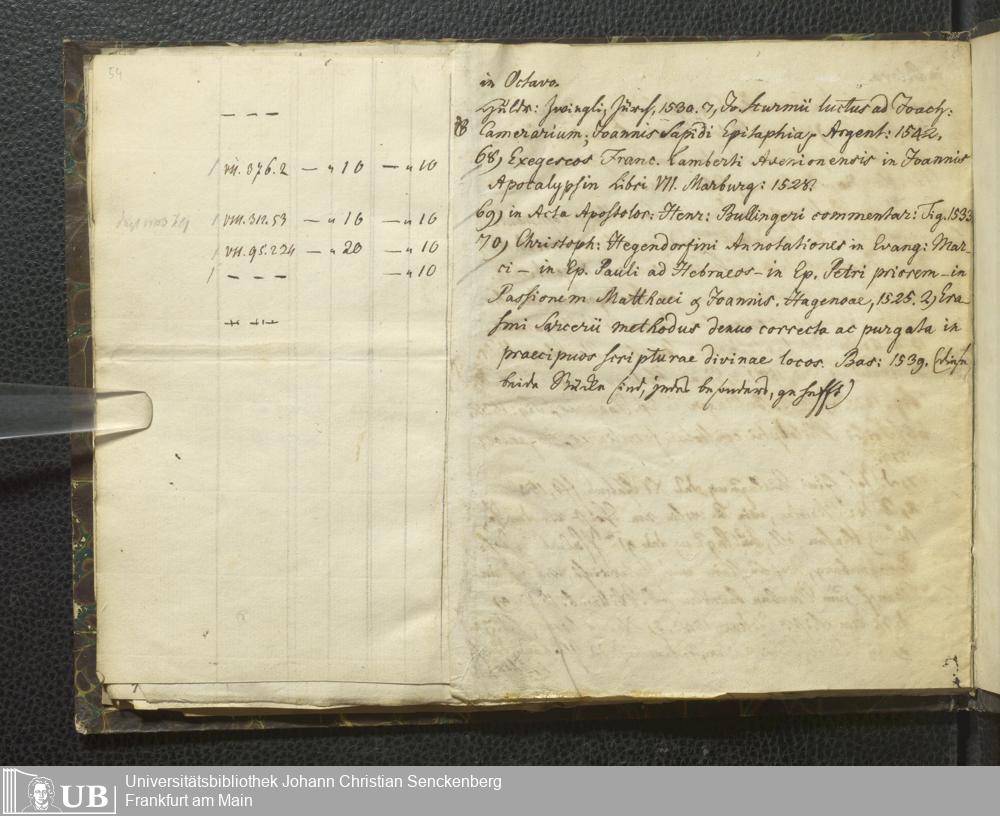 54
— — —
/ VII. 376.2 — " 10 — " 10
/ VIII. 311.53 — " 16 — " 10
/ VII. 95.224 — " 20 — " 10
/ — — — — " 10
in Octavo.
Huldr: Zwingli, Zürch, 1530. 7, Jo. Sturmii luctus ad Joach:
Camerarium; Joannis Sapidi Epitaphia, Argent: 1542.
68, Exegeseos Franc. Lamberti Avenionensis in Joannis
Apocalypsin Libri VII. Marburg: 1528.
69, in Acta Apostolor: Henr: Bullingeri commentar: Tig. 1533
70, Christoph: Hegendorfini Annotationes in Evang: Mar-
ci — in Ep. Pauli ad Hebraeos — in Ep. Petri priorem — in
Passionem Matthaei & Joannis. Hagenoae, 1525. 2, Era
smi Sarcerii methodus denuo correcta ac purgata in
praecipuos scripturae divinae locos. Bas: 1539. (diese
beide Stücke sind, jedes besonders, geheftt)
UB
Universitätsbibliothek Johann Christian Senckenberg
Frankfurt am Main